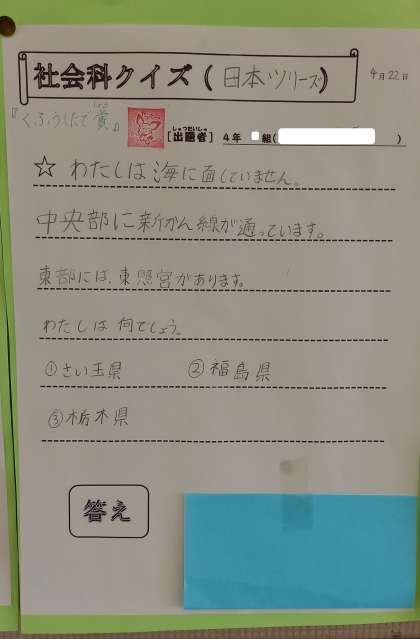 社会科クイズ(日本シリーズ)
4月22日
『くふうしたで賞』
しょう
[出題者]
しゅつだいしゃ
4年 組( )
☆わたしは海に面していません。
中央部に新かん線が通っています。
東部には、東照宮があります。
わたしは何でしょう。
①さい玉県 ②福島県
③栃木県
答え